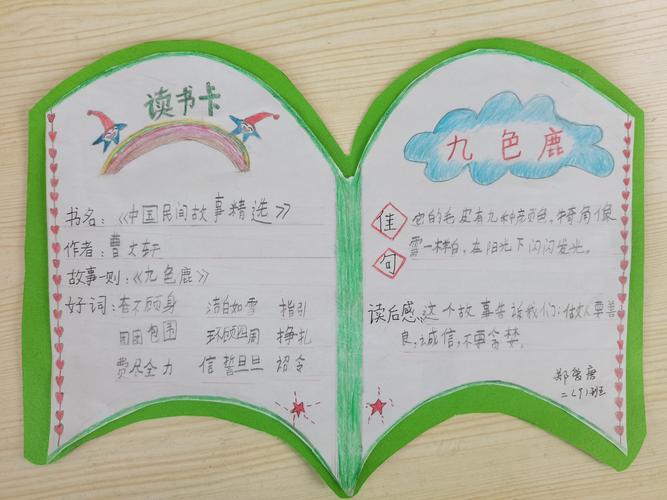 读书卡
书名：《中国民间故事精选》
作者：曹文轩
故事一则：《九色鹿》
好词：奋不顾身 洁白如雪 指引
团团包围 环顾四周 挣扎
费尽全力 信誓旦旦 诏令
九色鹿
佳句
它的毛皮有九种颜色，犄角像
雪一样白，在阳光下闪闪发光。
读后感：这个故事告诉我们：做人要善
良，诚信，不要贪婪。
二（9）班